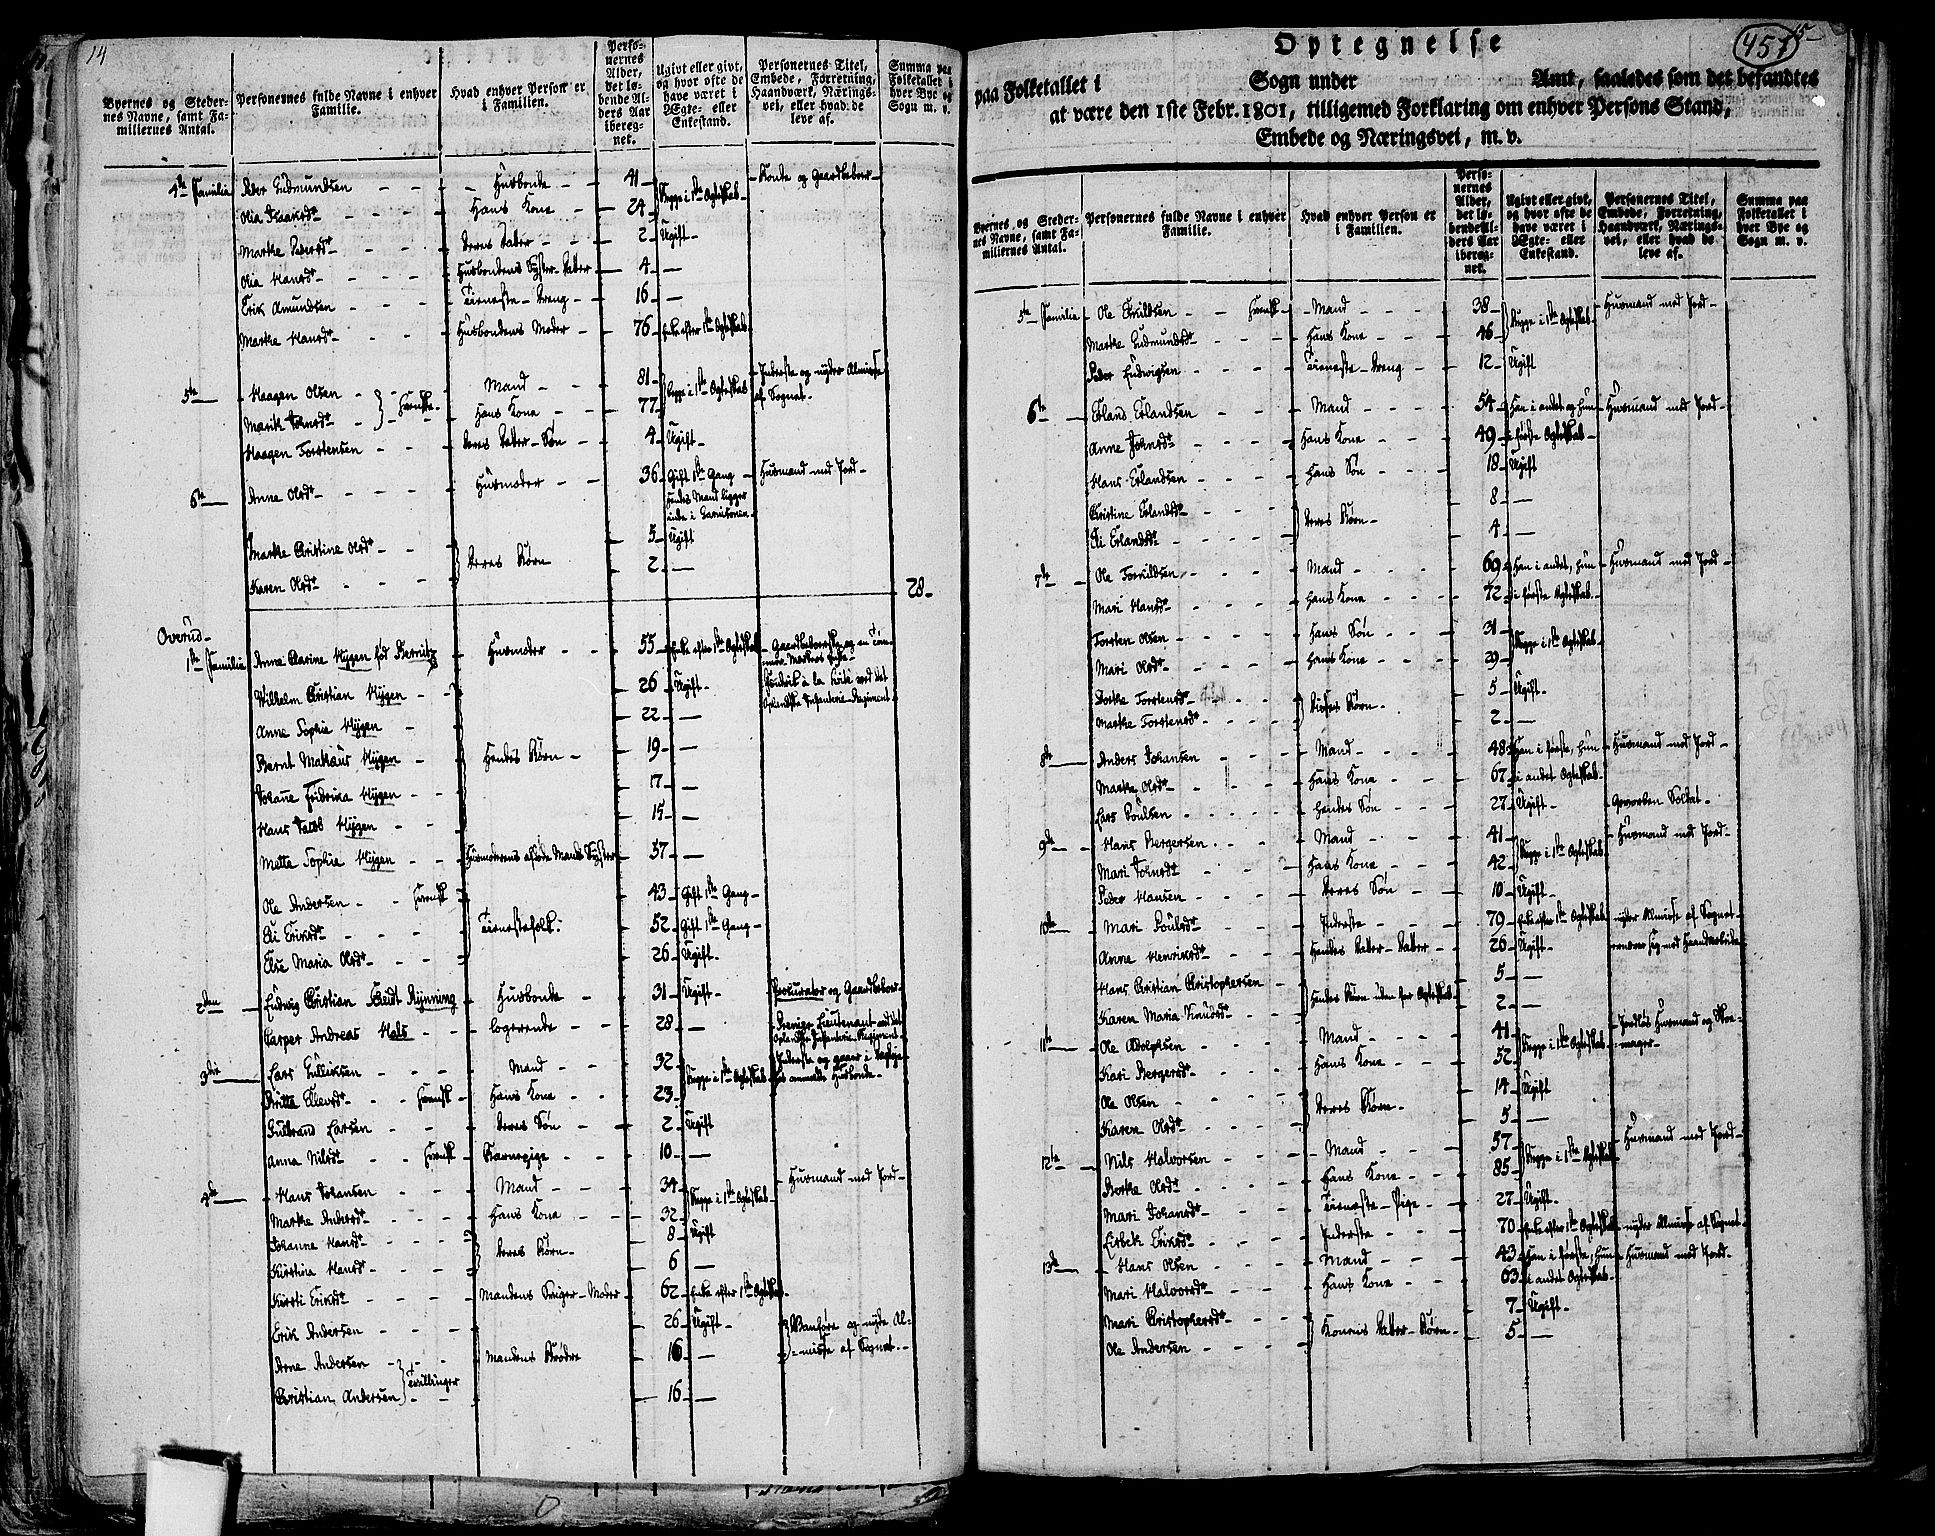 14
Byernes og Steder-
nes Navne, samt Fa-
miliernes Antal.
Personernes fulde Navne i enhver
Familie.
Hvad enhver Person er
i Familien.
Perso-
nernes
Alder,
det lø-
bende Al-
ders Aar
iberegnet.
Ugivt eller givt,
og hvor ofte de
have været i
Ægte- eller
Enkestand.
Personernes Titel,
Embede, Forretning,
Haandværk, Nærings-
vei, eller hvad de
leve af.
Summa paa
Folketallet i
hver Bye og
Sogn m. v.
4de Familie Peder Gudmundsen - - Husbonde - 41 Begge i 1ste Ægteskab Bonde og Gaardbeboer
Olia Isaksdt - - - Hans Kone - 24
Marthe Pedersdt - - - deres Datter - - 2 Ugift
Olia Hansdt - - - Husbondens Syster Datter - 4 —
Erik Amundsen - - - Tieneste-Dreng - 16 —
Marthe Hansdt - - - Husbondens Moder - 76 Enke efter 1ste Ægteskab
5te Haagen Olsen - Mand - - 81 Begge i 1ste Ægteskab Inderste og nyder Almisse
af Sognet
Marit Johnsdt - Hans Kone - - 77
Haagen Torstensen - deres Datter-Søn - 4 Ugift
6te Anne Olsdt - - - Husmoder - - 36 Gift 1ste Gang Husmand med Jord
Hendes Mand ligger
inde i Garnisonen
Marthe Christine Olsdt - 5 Ugift
deres Børn
Karen Olsdt - - - 2 —
28
Overud
1ste Familie Anne Catrine Hygen fød Bernitz Husmoder - - 55 Enke efter 1ste Ægteskab Gaardbeboerske
Wilhelm Christian Hygen - - 26 Ugift
Anne Sophie Hygen - 22 —
Bernt Hygen - 19 —
Hendes Børn
Johanne Fridrica Hygen - - 17 —
Hans Jacob Hygen - - 15 —
Mette Sophie Hygen - - Husmoderens afdøde Mands Syster 57 —
Ole Andersen - - 43 Gift 1ste Gang
Eli Eriksdt - - - 52 Gift 1ste Gang
Tienestefolk
Else Maria Olsdt - 26 Ugift
2den Ludvig Christian Rynning Husbonde - 31 Ugift Procurator og Gaardbeboer
Casper Andreas Hals - - logerende - 28 — Premier Lieutenant ved det
Oplandske Infanterie-Regiment
3die Lars Gulliksen - - Mand - - 32 Begge i 1ste Ægteskab
Britte Ellevsdt - Hans Kone - - 23
Gulbrand Larsen - - deres Søn - - 2 Ugift
Anna Nilsdt - - Barnepige - 10 —
4de Hans Johansen - - Mand - - 34 Begge i 1ste Ægteskab Husmand med Jord
Marthe Andersdt - - - Hans Kone - 32
Johanne Hansdt - - - 8 Ugift
deres Børn
Kirstina Hansdt - - - 6 —
Kirsti Eriksdt - - - Mandens Sviger-Moder 62 Enke efter 1ste Ægteskab
Erik Andersen - - - 26 Ugift Vanføre og nyde Al-
misse af Sognet
Arne Andersen - - Mandens Brødre 16 —
Tvillinger
Christian Andersen 16 —
457 15
Optegnelse
paa Folketallet i Sogn under Amt, saaledes som det befandtes
at være den 1ste Febr. 1801, tilligemed Forklaring om enhver Persons Stand,
Embede og Næringsvei, m. v.
Byernes og Steder-
nes Navne, samt Fa-
miliernes Antal.
Personernes fulde Navne i enhver
Familie.
Hvad enhver Person er
i Familien.
Perso-
nernes
Alder,
det lø-
bende Al-
ders Aar
ibereg-
net.
Ugivt eller givt,
og hvor ofte de
have været i
Ægte- eller
Enkestand.
Personernes Titel,
Embede, Forretning,
Haandværk, Nærings-
vei, eller hvad de
leve af.
Summa paa
Folketallet i
hver Bye og
Sogn m. v.
5te Familie Ole - - Mand - - 38 Begge i 1ste Ægteskab Husmand med Jord
Marthe Gudmundsdt - - Hans Kone - - 46
Peder Ludvigsen - - Tieneste-Dreng - 12 Ugift
6te Erland Erlandsen - - Mand - - 54 Han i andet og hun Husmand med Jord
Anne Johnsdt - - - Hans Kone - - 49 i første Ægteskab
Hans Erlandsen - - Hans Søn - - 18 Ugift
Christine Erlandsdt - - 8 —
deres Børn
Eli Erlandsdt - - 4 —
7de Ole - - Mand - - 69 Han i andet, hun Husmand med Jord
Mari Hansdt - - - Hans Kone - - 72 i første Ægteskab
Torsten Olsen - - - Hans Søn - - 31 Begge i 1ste Ægteskab
Mari Olsdt - - - Hans Kone - - 29
Dorthe Torstensdt - 5 Ugift
Børn
Marthe Torstensdt - - 2 —
8de Anders Johansen - - Mand - - 48 Han i første, hun Husmand med Jord
Marthe Olsdt - - - Hans Kone - - 67 i andet Ægteskab
Lars Poulsen - - - Hendes Søn - - 27 Ugift Geworben Soldat
9de Hans Børgersen - - Mand - - 41 Begge i 1ste Ægteskab Husmand med Jord
Mari Johnsdt - - - Hans Kone - - 42
Peder Hansen - - - Deres Søn - - 10 Ugift
10de Mari Poulsdt - - Inderste - - 79 Enke efter 1ste Ægteskab nyder Almisse af Sognet
Anne Henriksdt - - Hendes Datter-Datter 26 Ugift ernærer sig med Haandarbeide
Hans Christian Christophersen - 5 —
Hendes Børn uden for Ægteskab
Karen Maria Knudsdt - - 2 —
11te Ole Adolphsen - - Mand - - 41 Begge i 1ste Ægteskab Jordløs Husmand og Skoe-
mager
Kari Børgersdt - - Hans Kone - - 52
Ole Olsen - - - 14 Ugift
deres Børn
Karen Olsdt - - - 5 —
12te Nils Halvorsen - - Mand - - 57 Begge i 1ste Ægteskab Husmand med Jord
Dorthe Olsdt - - - Hans Kone - - 85
Mari Johansdt - - - Tieneste-Pige - 27 Ugift
Lisbeth Eriksdt - - - Inderste - - 70 Enke efter 1ste Ægteskab nyder Almisse af Sognet
13de Hans Olsen - - Mand - - 43 Han i første, hun Husmand med Jord
Mari Halvorsdt - - Hans Kone - - 63 i andet Ægteskab
Mari Christophersdt - 7 Ugift
Konens Datter-Børn
Ole Andersen - - 5 —